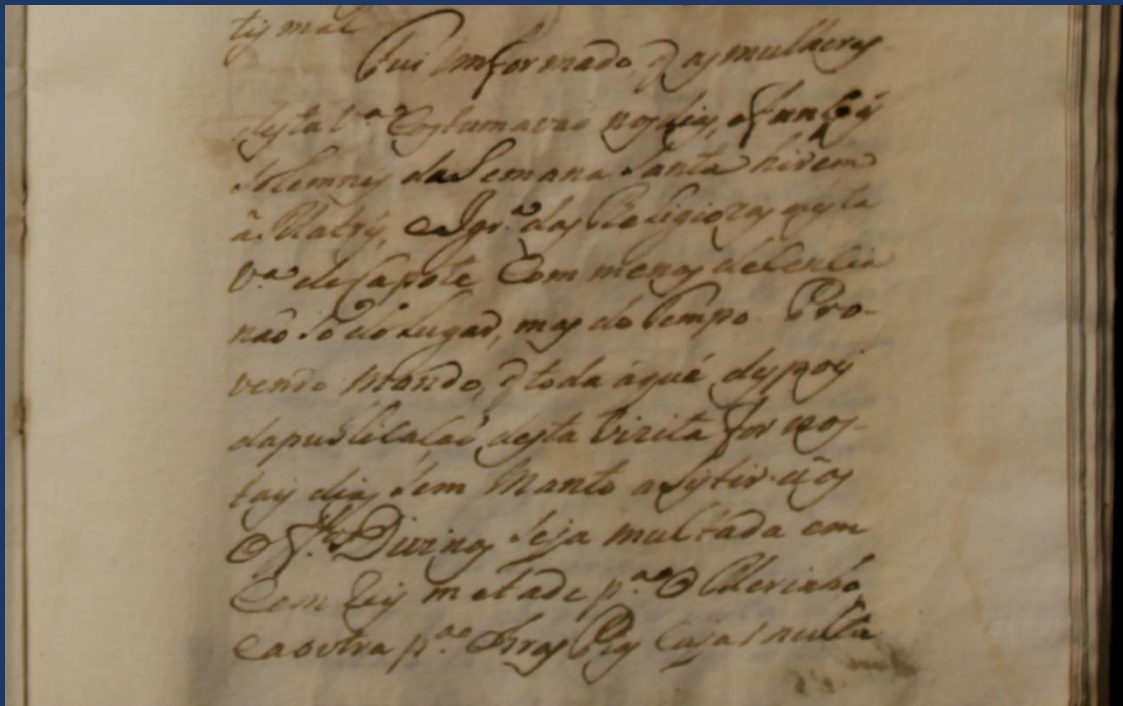 Fui imformado q as mulheres
desta V.ª Costumavaõ nos dias, e funções
Solemnes da Semana Santa hirem
â Matris, e Igr.ª das Religiozas desta
V.ª de Capote Com menos decencia
naõ só do lugar, mas do tempo. Pro-
vendo Mando, q toda áqué despois
dapublicacaõ desta Vizita for nos-
tais dias sem Manto asistir aos
Off.os Divinos seja multada em
Cem Reis metade p.ª o Meirinho
eaoutra p.ª Obras Pias Cuja multa